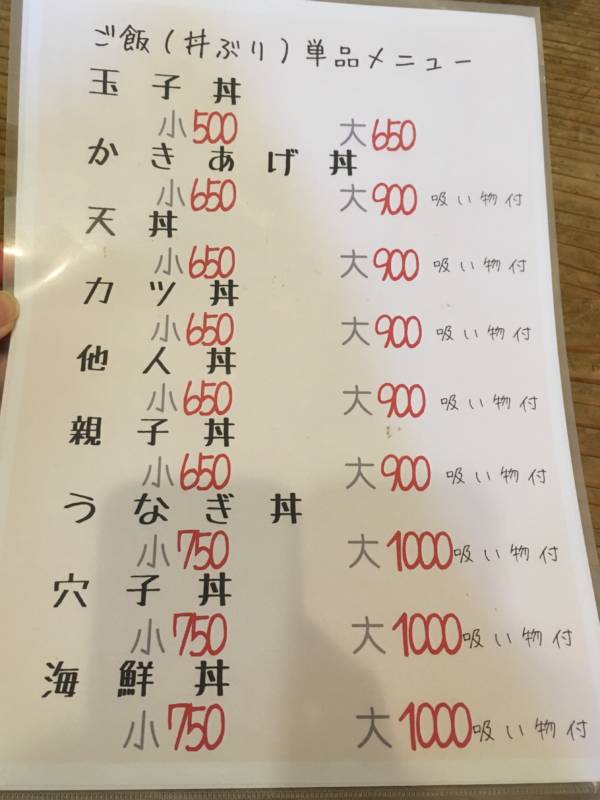 ご飯(丼ぶり)単品メニュー
玉子丼
小500 大650
かきあげ丼
小650 大900 吸い物付
天丼
小650 大900 吸い物付
カツ丼
小650 大900 吸い物付
他人丼
小650 大900 吸い物付
親子丼
小650 大900 吸い物付
うなぎ丼
小750 大1000 吸い物付
穴子丼
小750 大1000 吸い物付
海鮮丼
小750 大1000 吸い物付